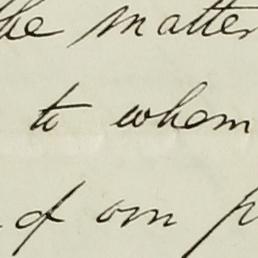 the matter
to whom
of our p